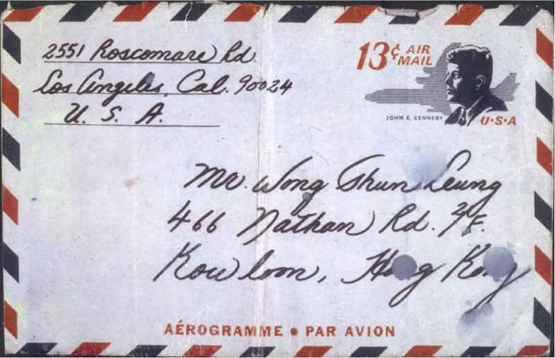 2551 Roscomare Rd
Los Angeles, Cal. 90024
U. S. A.
13¢ AIR MAIL
JOHN F. KENNEDY
U·S·A
Mr. Wong Shun Leung
466 Nathan Rd. 7/F.
Kowloon, Hong Kong
AÉROGRAMME • PAR AVION